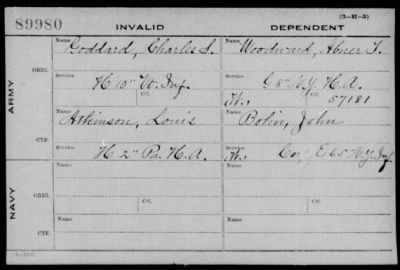 (3-H-5)
89980 INVALID DEPENDENT
Name Goddard, Charles S. Name Woodward, Abner T.
ORIG.
Service H 10" Vt. Inf. Service G 8" N.Y. H.A.
Ctf. W. Ctf. 57181
ARMY
Name Atkinson, Louis Name Bolin, John
CTF.
Service H 2" Pa. H.A. Service W. Co. E 65" N.Y. Inf.
Name Name
ORIG.
Ctf. Ctf.
NAVY
Name Name
CTF.